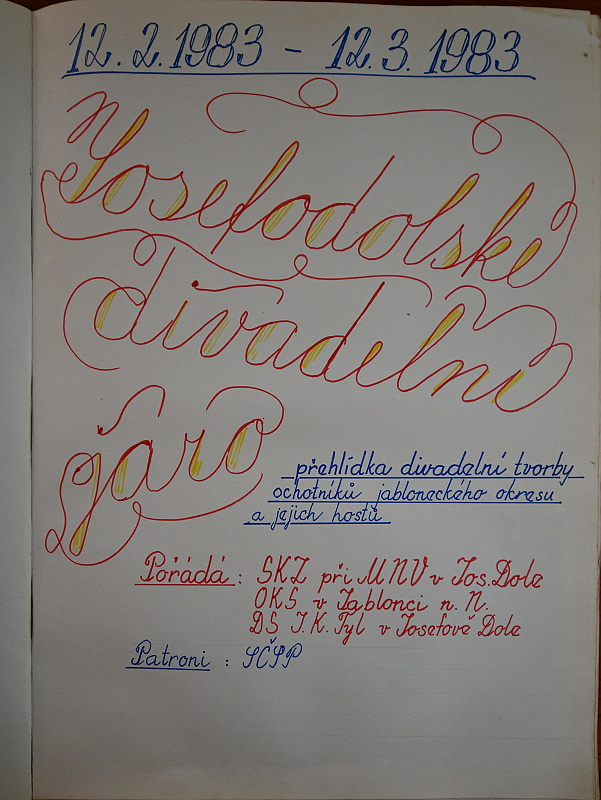 12. 2. 1983 - 12. 3. 1983
Josefodolské
divadelní
jaro
přehlídka divadelní tvorby
ochotníků jabloneckého okresu
a jejich hostů
Pořádá: SKZ při MNV v Jos. Dole
OKS v Jablonci n. N.
DS J. K. Tyl v Josefově Dole
Patroni : SČSP